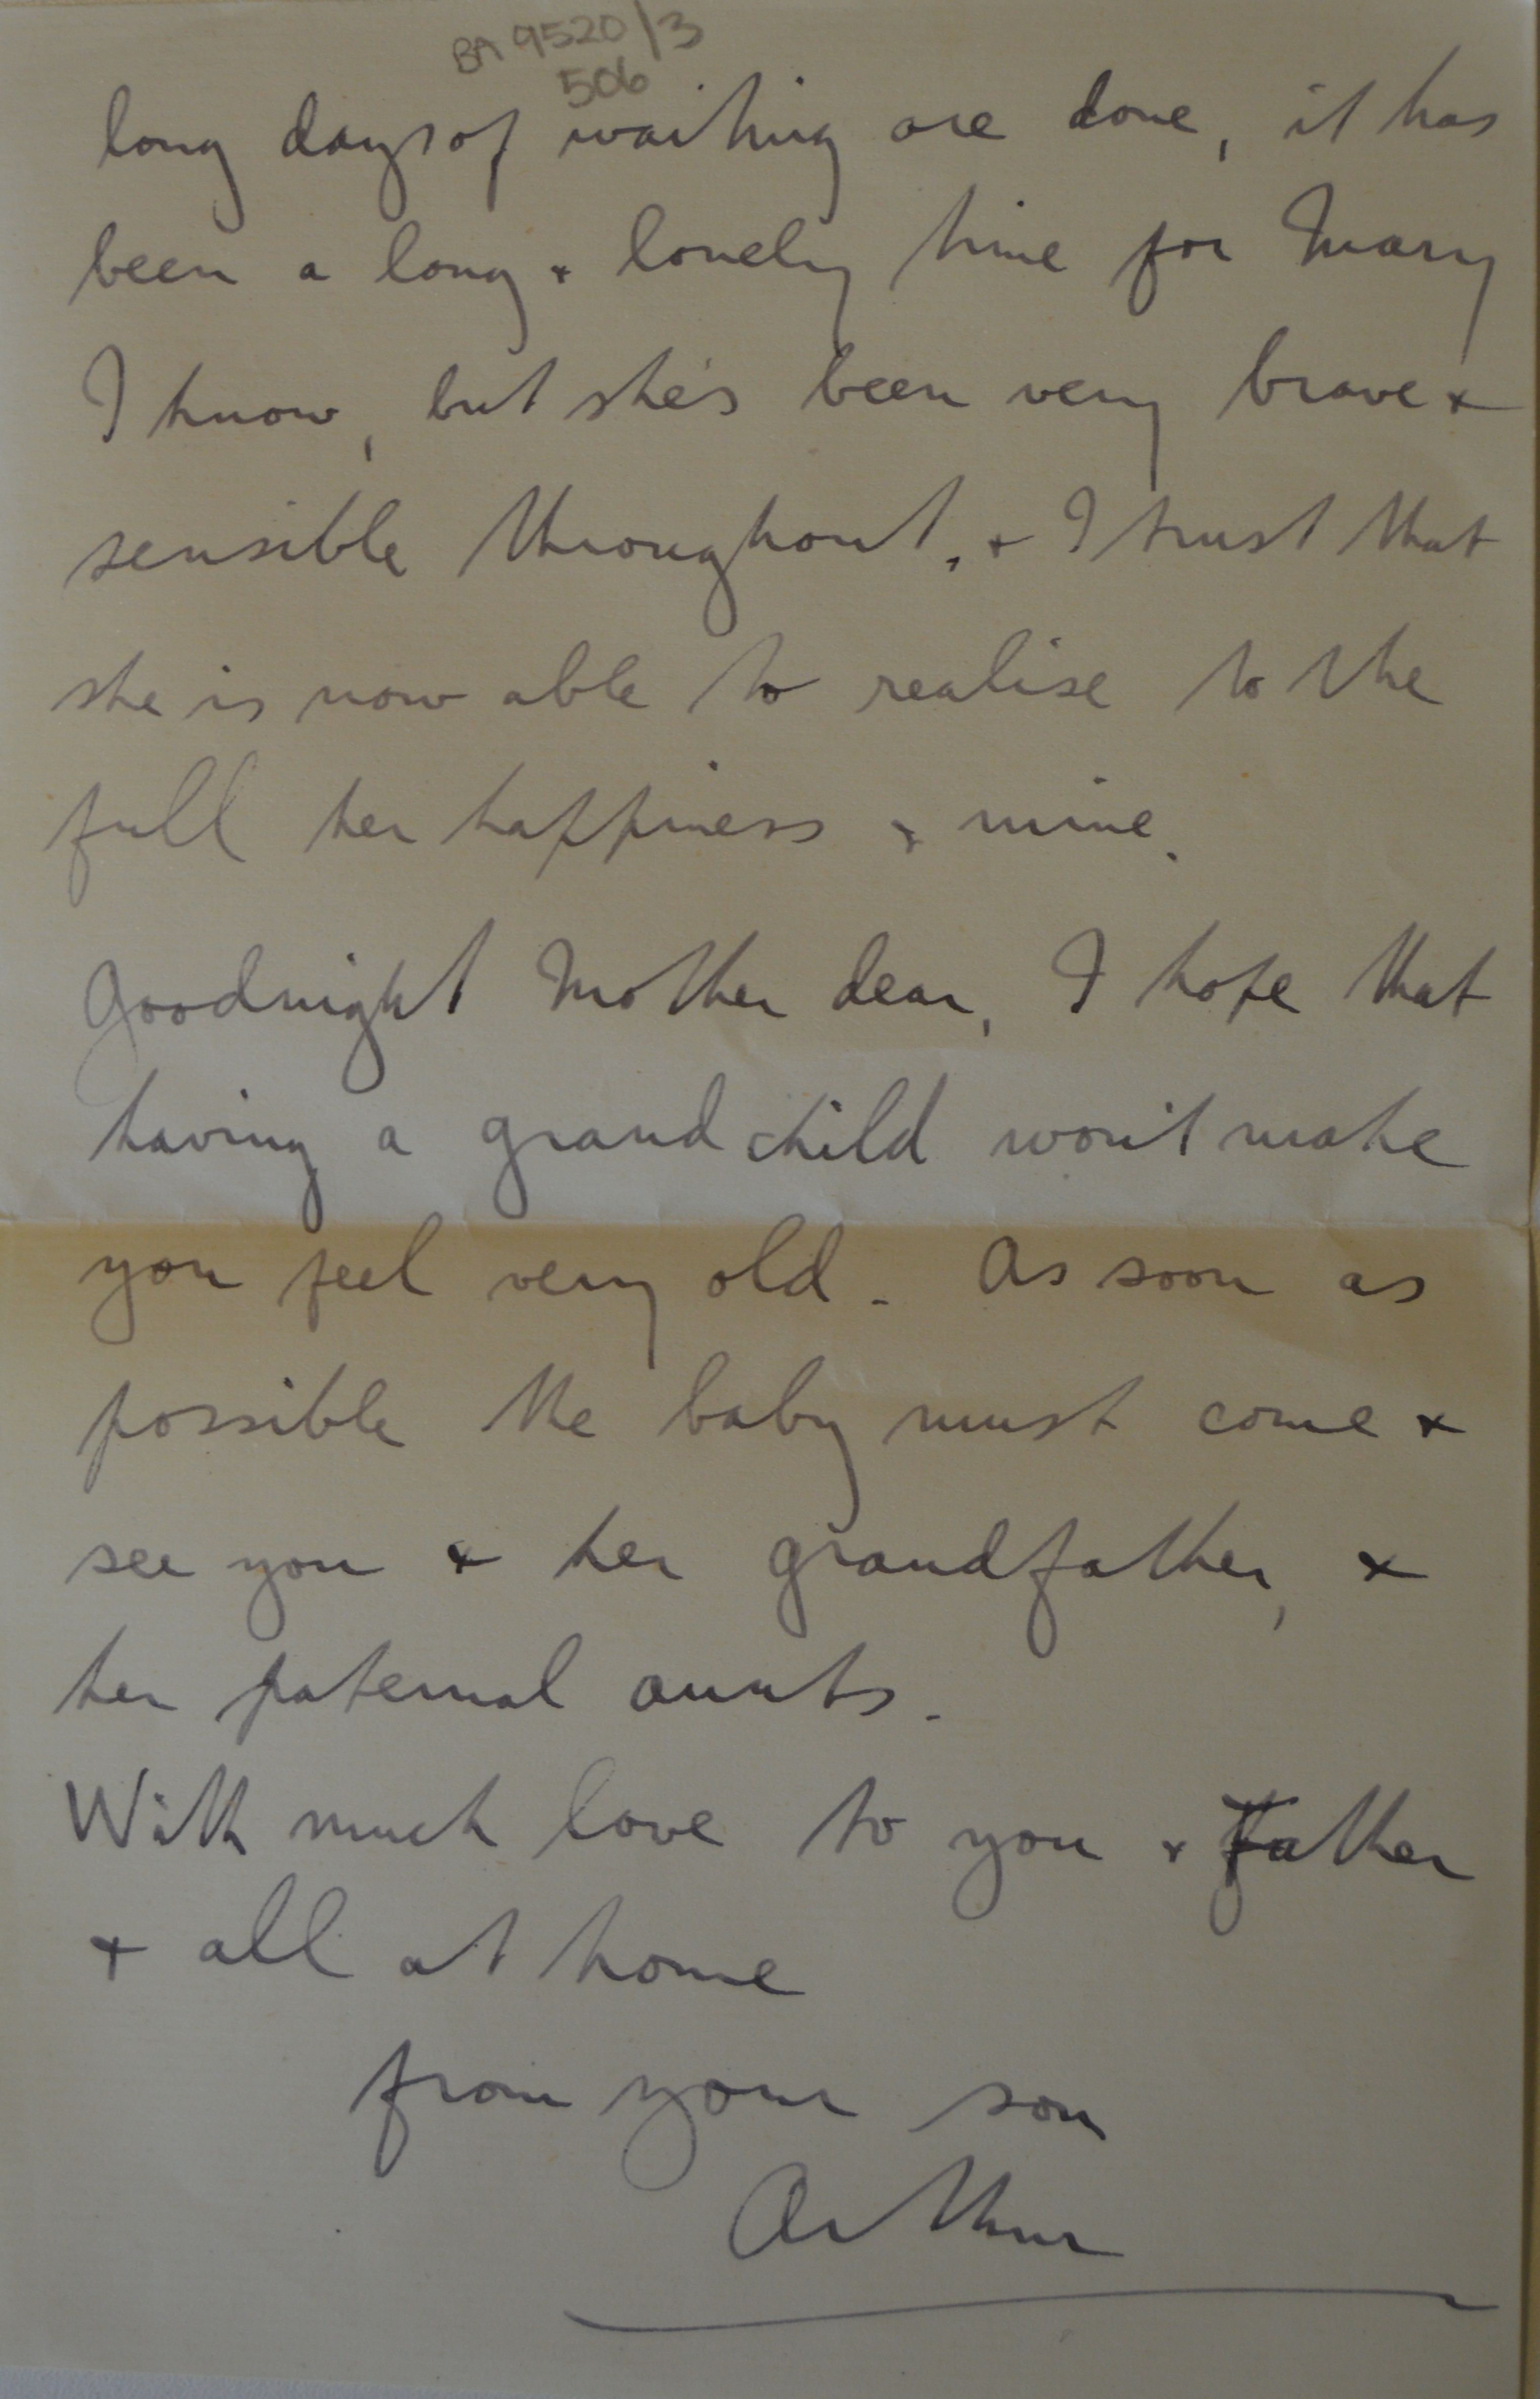 BA 9520/3
506
long days of waiting are done, it has
been a long + lonely time for Mary
I know, but she's been very brave +
sensible throughout, + I trust that
she is now able to realise to the
full her happiness + mine.
Goodnight Mother dear, I hope that
having a grand child won't make
you feel very old. As soon as
possible the baby must come +
see you + her grandfather, +
her paternal aunts.
With much love to you + Father
+ all at home
from your son
Arthur